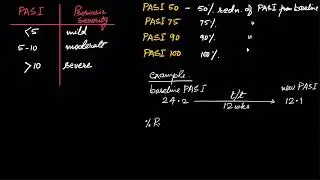 PASI Psoriasis Severity
<5 mild
5-10 moderate
>10 severe
PASI 50 - 50% redn. of PASI from baseline
PASI 75 75% "
PASI 90 90% "
PASI 100 100% "
example
baseline PASI t/t new PASI
24.2 12 wks 12.1
% R